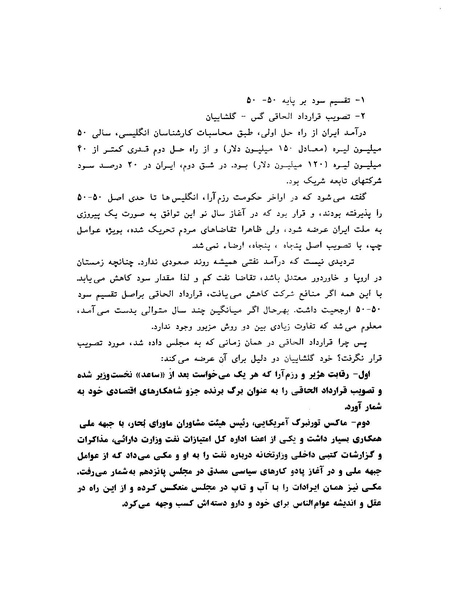 ۱- تقسیم سود بر پایه ۵۰- ۵۰
۲- تصویب قرارداد الحاقی گس - گلشاییان
درآمد ایران از راه حل اولی، طبق محاسبات کارشناسان انگلیسی، سالی ۵۰
میلیون لیره (معادل ۱۵۰ میلیون دلار) و از راه حل دوم قدری کمتر از ۴۰
میلیون لیره (۱۲۰ میلیون دلار) بود. در شق دوم، ایران در ۲۰ درصد سود
شرکتهای تابعه شریک بود.
گفته می‌شود که در اواخر حکومت رزم‌آرا، انگلیس‌ها تا حدی اصل ۵۰-۵۰
را پذیرفته بودند، و قرار بود که در آغاز سال نو این توافق به صورت یک پیروزی
به ملت ایران عرضه شود، ولی ظاهرا تقاضاهای مردم تحریک شده، بویژه عوامل
چپ، با تصویب اصل پنجاه ، پنجاه، ارضاء نمی‌شد.
تردیدی نیست که درآمد نفتی همیشه روند صعودی ندارد. چنانچه زمستان
در اروپا و خاوردور معتدل باشد، تقاضا نفت کم و لذا مقدار سود کاهش می‌یابد.
با این همه اگر منافع شرکت کاهش می‌یافت، قرارداد الحاقی براصل تقسیم سود
۵۰-۵۰ ارجحیت داشت. بهرحال اگر میانگین چند سال متوالی بدست می‌آمد،
معلوم می‌شد که تفاوت زیادی بین دو روش مزبور وجود ندارد.
پس چرا قرارداد الحاقی در همان زمانی که به مجلس داده شد، مورد تصویب
قرار نگرفت؟ خود گلشاییان دو دلیل برای آن عرضه می‌کند:
اول- رقابت هژیر و رزم‌آرا که هر یک می‌خواست بعد از «ساعد» نخست‌وزیر شده
و تصویب قرارداد الحاقی را به عنوان برگ برنده جزو شاهکارهای اقتصادی خود به
شمار آورد.
دوم- ماکس تورنبرگ آمریکایی، رئیس هیئت مشاوران ماورای بُحار، با جبهه ملی
همکاری بسیار داشت و یکی از اعضا اداره کل امتیازات نفت وزارت دارائی، مذاکرات
و گزارشات کتبی داخلی وزارتخانه درباره نفت را به او و مکی می‌داد که از عوامل
جبهه ملی و در آغاز پادو کارهای سیاسی مصدق در مجلس پانزدهم به‌شمار می‌رفت.
مکی نیز همان ایرادات را با آب و تاب در مجلس منعکس کرده و از این راه در
عقل و اندیشه عوام‌الناس برای خود و دارو دسته‌اش کسب وجهه می‌کرد.